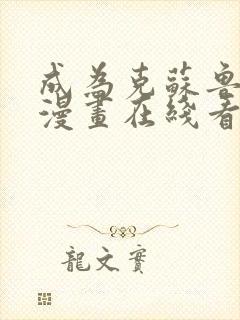 成為克蘇魯
漫畫在綫看
龍文實